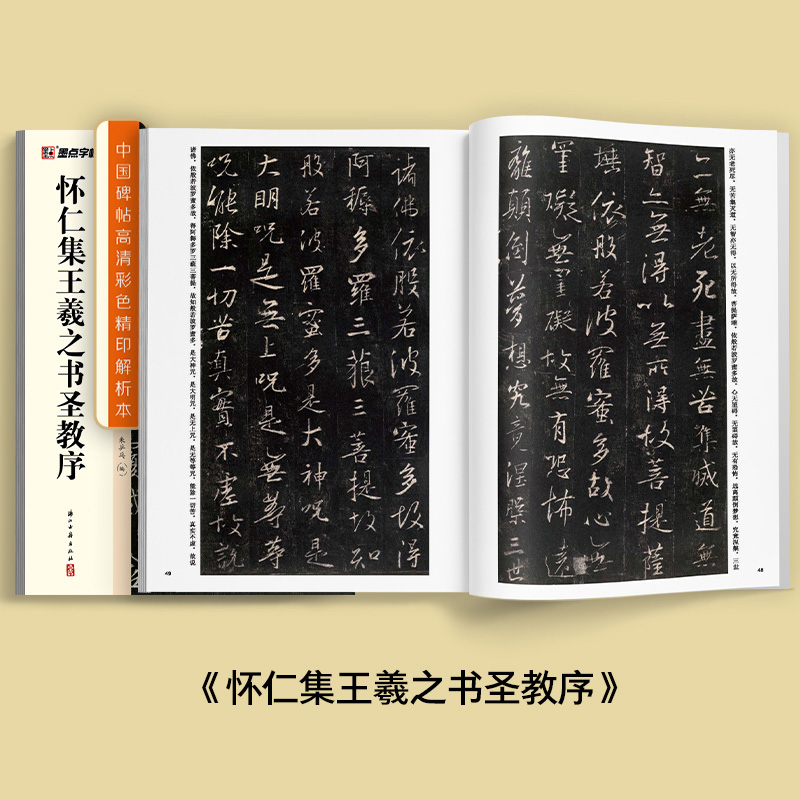 墨点字帖
怀仁集王羲之书圣教序
浙江古籍出版社
中国碑帖高清彩色精印解析本
亦无老死尽，无苦集灭道，无智亦无得，以无所得故，菩提萨埵，依般若波罗蜜多故，心无罣碍，无罣碍故，无有恐怖，远离颠倒梦想，究竟涅槃，三世
亦無老死盡無苦集滅道無
智亦無得以無所得故菩提薩
埵依般若波羅蜜多故心無
罣礙無罣礙故無有恐怖遠
離顛倒夢想究竟涅槃三世
48
諸佛依般若波羅蜜多故得
阿耨多羅三藐三菩提故知
般若波羅蜜多是大神咒是
大明咒是無上咒是無等等
咒能除一切苦真實不虛故說
诸佛，依般若波罗蜜多故，得阿耨多罗三藐三菩提。故知般若波罗蜜多，是大神咒，是大明咒，是无上咒，是无等等咒，能除一切苦，真实不虚，故说
49
《怀仁集王羲之书圣教序》